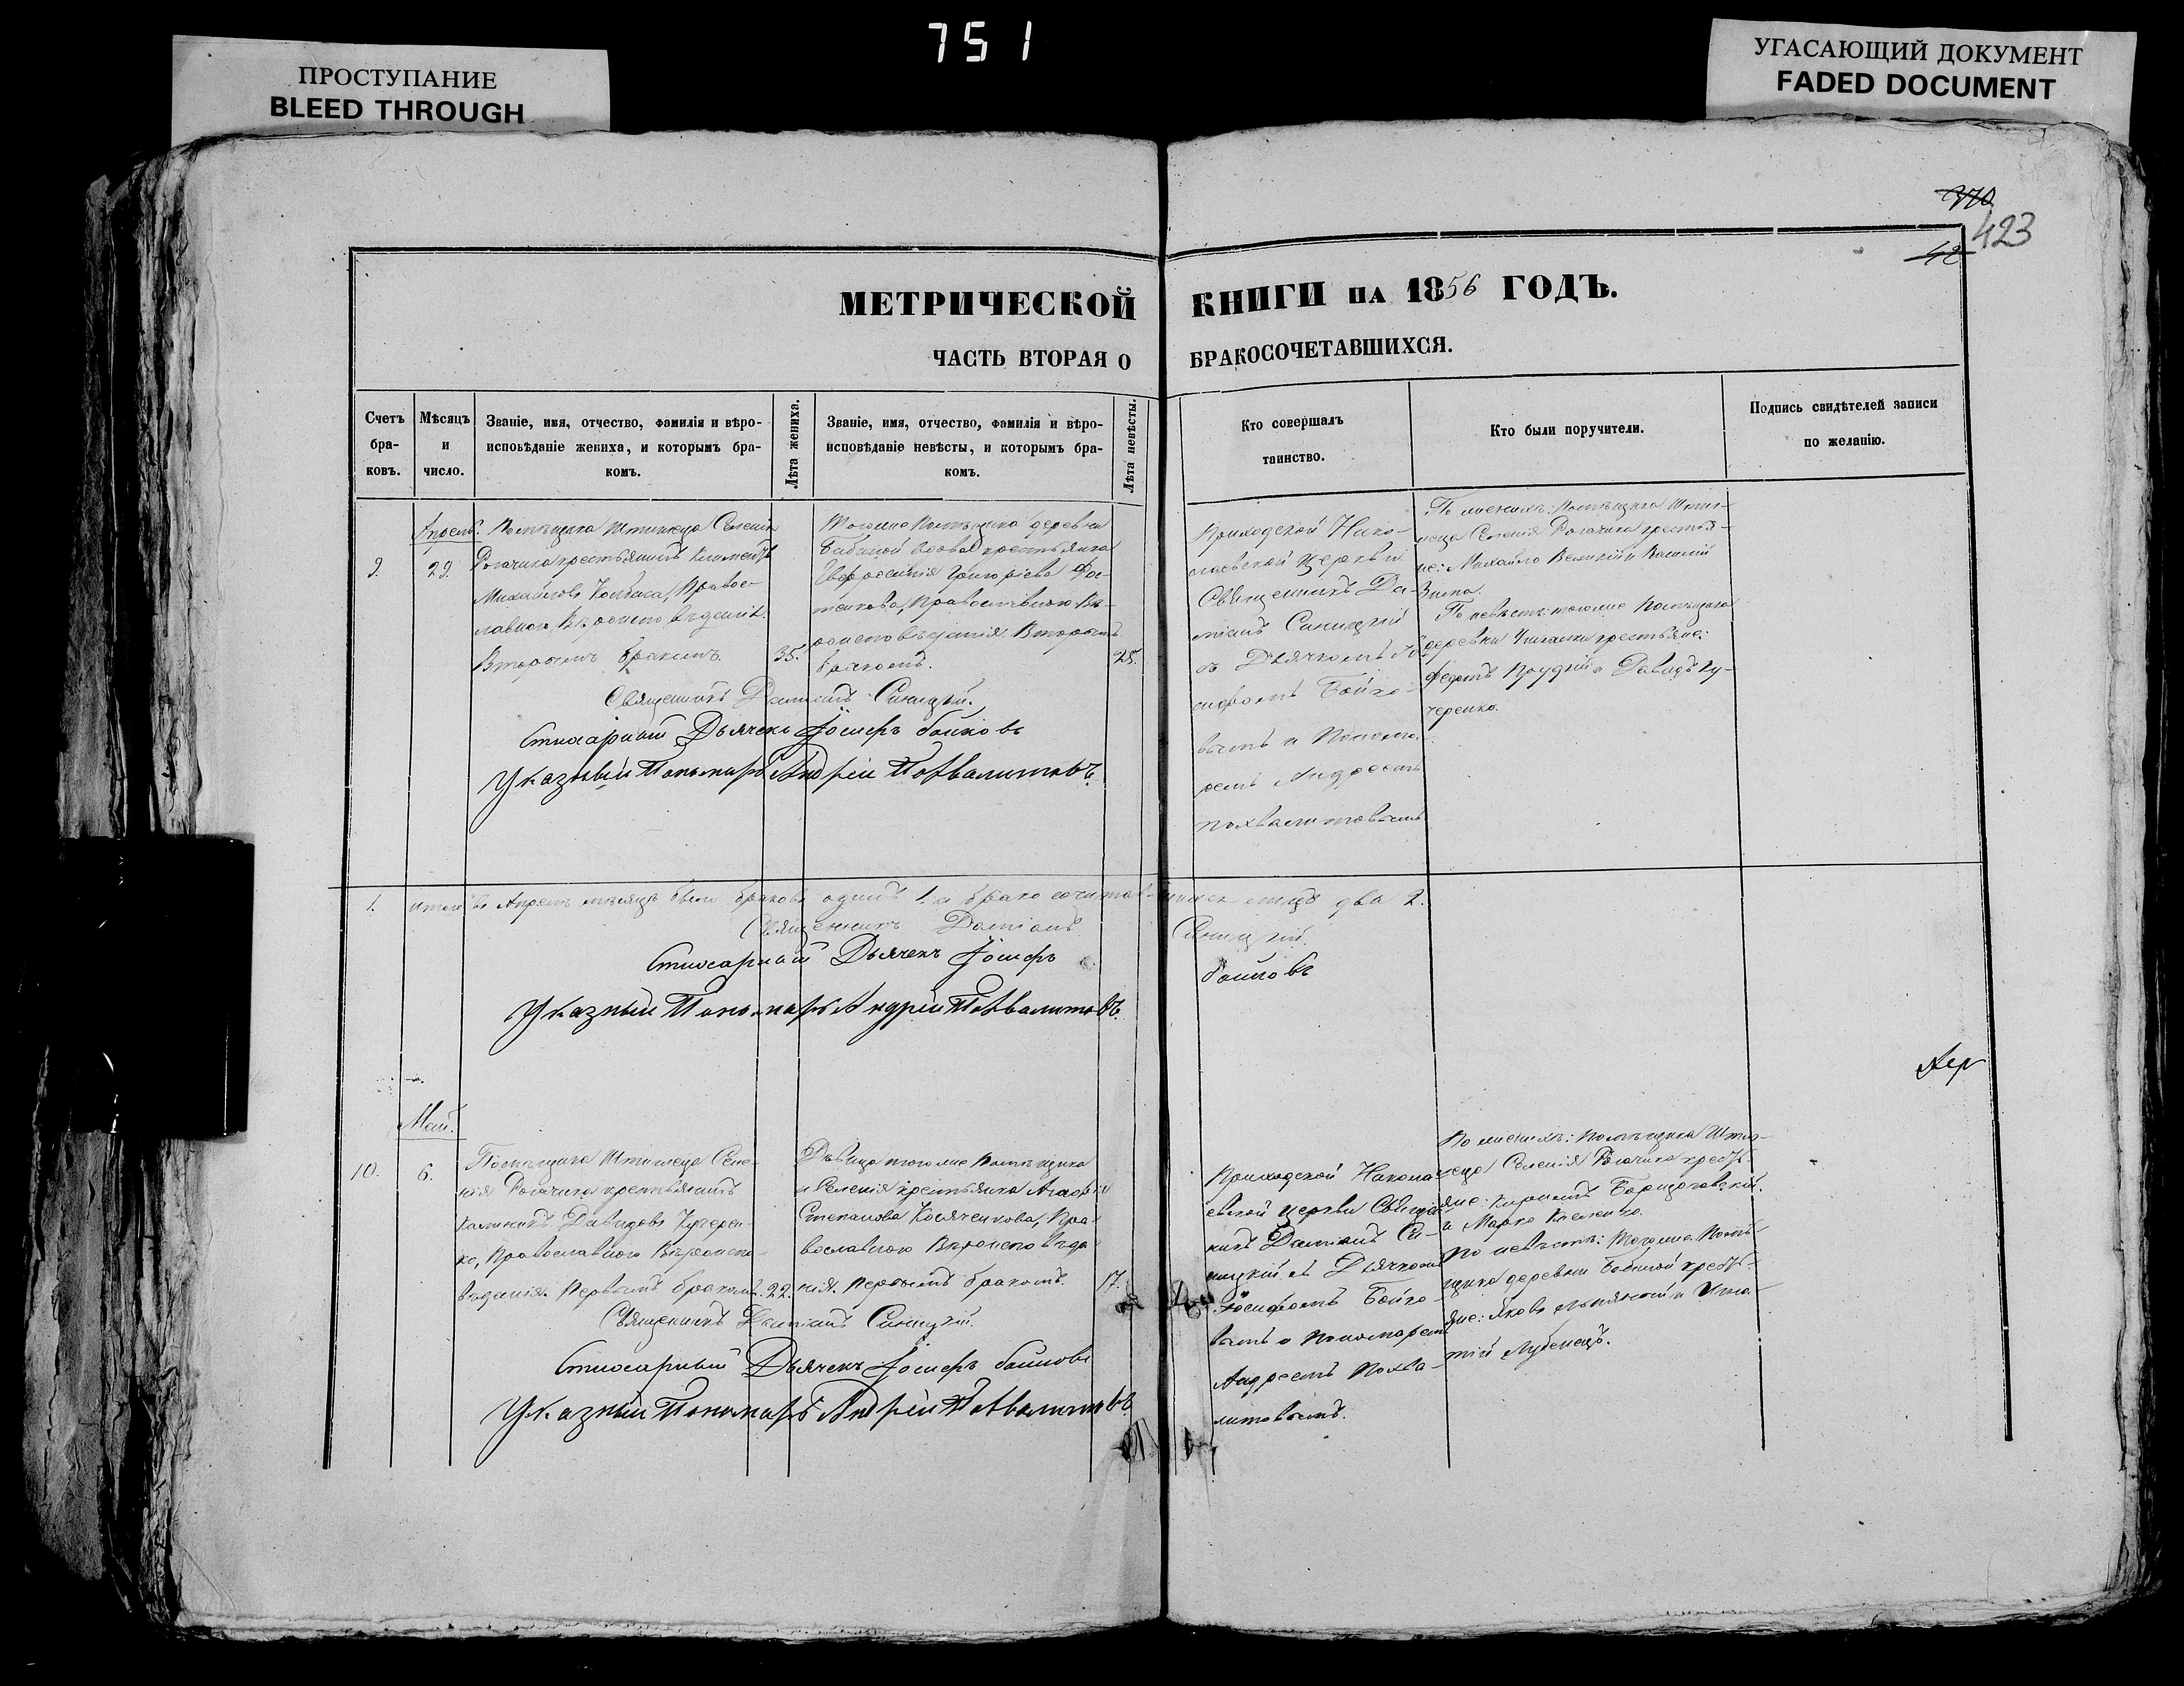 751
ПРОСТУПАНИЕ
BLEED THROUGH
УГАСАЮЩИЙ ДОКУМЕНТ
FADED DOCUMENT
370
423
42
МЕТРИЧЕСКОЙ КНИГИ НА 1856 ГОДЪ.
ЧАСТЬ ВТОРАЯ О БРАКОСОЧЕТАВШИХСЯ.
Счетъ
бра-
ковъ.
Мѣсяцъ
и
число.
Званіе, имя, отчество, фамилія и вѣро-
исповѣданіе жениха, и которымъ бра-
комъ.
Лѣта жениха.
Званіе, имя, отчество, фамилія и вѣро-
исповѣданіе невѣсты, и которымъ бра-
комъ.
Лѣта невѣсты.
Кто совершалъ
таинство.
Кто были поручители.
Подпись свидѣтелей записи
по желанію.
9.
Апрель.
29.
Помѣщика Штиглеца Селенія
Рогачика крестьянинъ
Михайловъ Правос-
лавнаго Вѣроисповѣданія.
Вторымъ бракомъ.
35.
Тогоже Помѣщика деревни
Бабиной вдова крестьянка
Евфросинія Григоріева
Православнаго Вѣ-
роисповѣданія. Вторымъ
бракомъ.
25.
Приходской Нико-
лаевской церкви
Священникъ Да-
міанъ Синицкій
съ Дьячкомъ Іо-
сифомъ Бойко-
вымъ и Понома-
ремъ Андреемъ
Похвалитовымъ
По женихѣ: Помѣщика Штиг-
леца Селенія Рогачика крестья-
не: Михайло Великій и Василій
По невѣстѣ: тогоже Помѣщика
деревни крестьяне:
Федотъ Прудкій и Давидъ Ку-
черенко.
Священникъ Даміанъ Синицкій.
Стихарный Дьячекъ Іосифъ Бойковъ
Указный Пономарь Андрей Похвалитовъ.
1.
Итого въ Апрелѣ мѣсяцѣ было браковъ одинъ 1. а бракосочетавшихся лицъ два 2.
Священникъ Даміанъ Синицкій.
Стихарный Дьячекъ Іосифъ Бойковъ
Указный Пономарь Андрей Похвалитовъ.
Май.
10.
6.
Помѣщика Штиглеца Селе-
нія Рогачика крестьянинъ
Калиникъ Давидовъ Кучерен-
ко, Православнаго Вѣроиспо-
вѣданія. Первымъ бракомъ.
22.
Дѣвица тогоже Помѣщика
и Селенія крестьянка Агафія
Степанова Пра-
вославнаго Вѣроисповѣда-
нія. Первымъ бракомъ.
17.
Приходской Никола-
евской церкви Священ-
никъ Даміанъ Си-
ницкій съ Дьячкомъ
Іосифомъ Бойко-
вымъ и Пономаремъ
Андреемъ Похва-
литовымъ.
По женихѣ: Помѣщика Штиг-
леца Селенія Рогачика кресть-
яне:
и Марко
По невѣстѣ: Тогоже Помѣ-
щика деревни Бабиной кресть-
яне: Яковъ и Игна-
тій Лубенецъ.
Священникъ Даміанъ Синицкій.
Стихарный Дьячекъ Іосифъ Бойковъ
Указный Пономарь Андрей Похвалитовъ